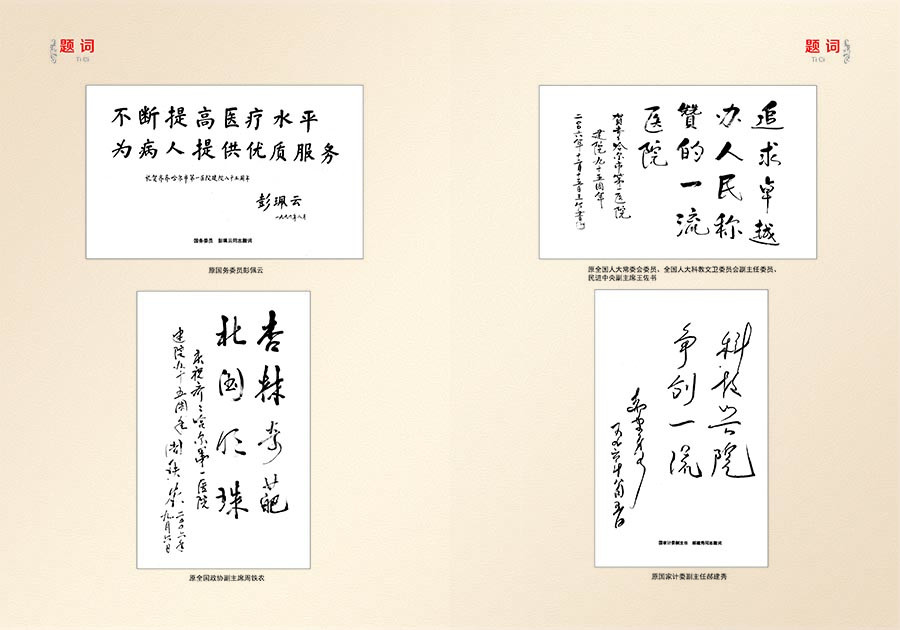 题词
Ti Ci
不断提高医疗水平
为病人提供优质服务
祝贺齐齐哈尔市第一医院建院八十五周年
彭珮云
一九九六年八月
国务委员 彭珮云同志题词
原国务委员彭佩云
杏林奇葩
北国明珠
庆祝齐齐哈尔第一医院
建院九十五周年 周铁农 二〇〇六年
九月六日
原全国政协副主席周铁农
题词
Ti Ci
追求卓越
办人民称
赞的一流
医院
贺齐齐哈尔市第一医院
建院九十五周年
二〇〇六年十一月十五日王佐书
原全国人大常委会委员、全国人大科教文卫委员会副主任委员、
民进中央副主席王佐书
科技兴院
争创一流
郝建秀
国家计委副主任 郝建秀同志题词
原国家计委副主任郝建秀